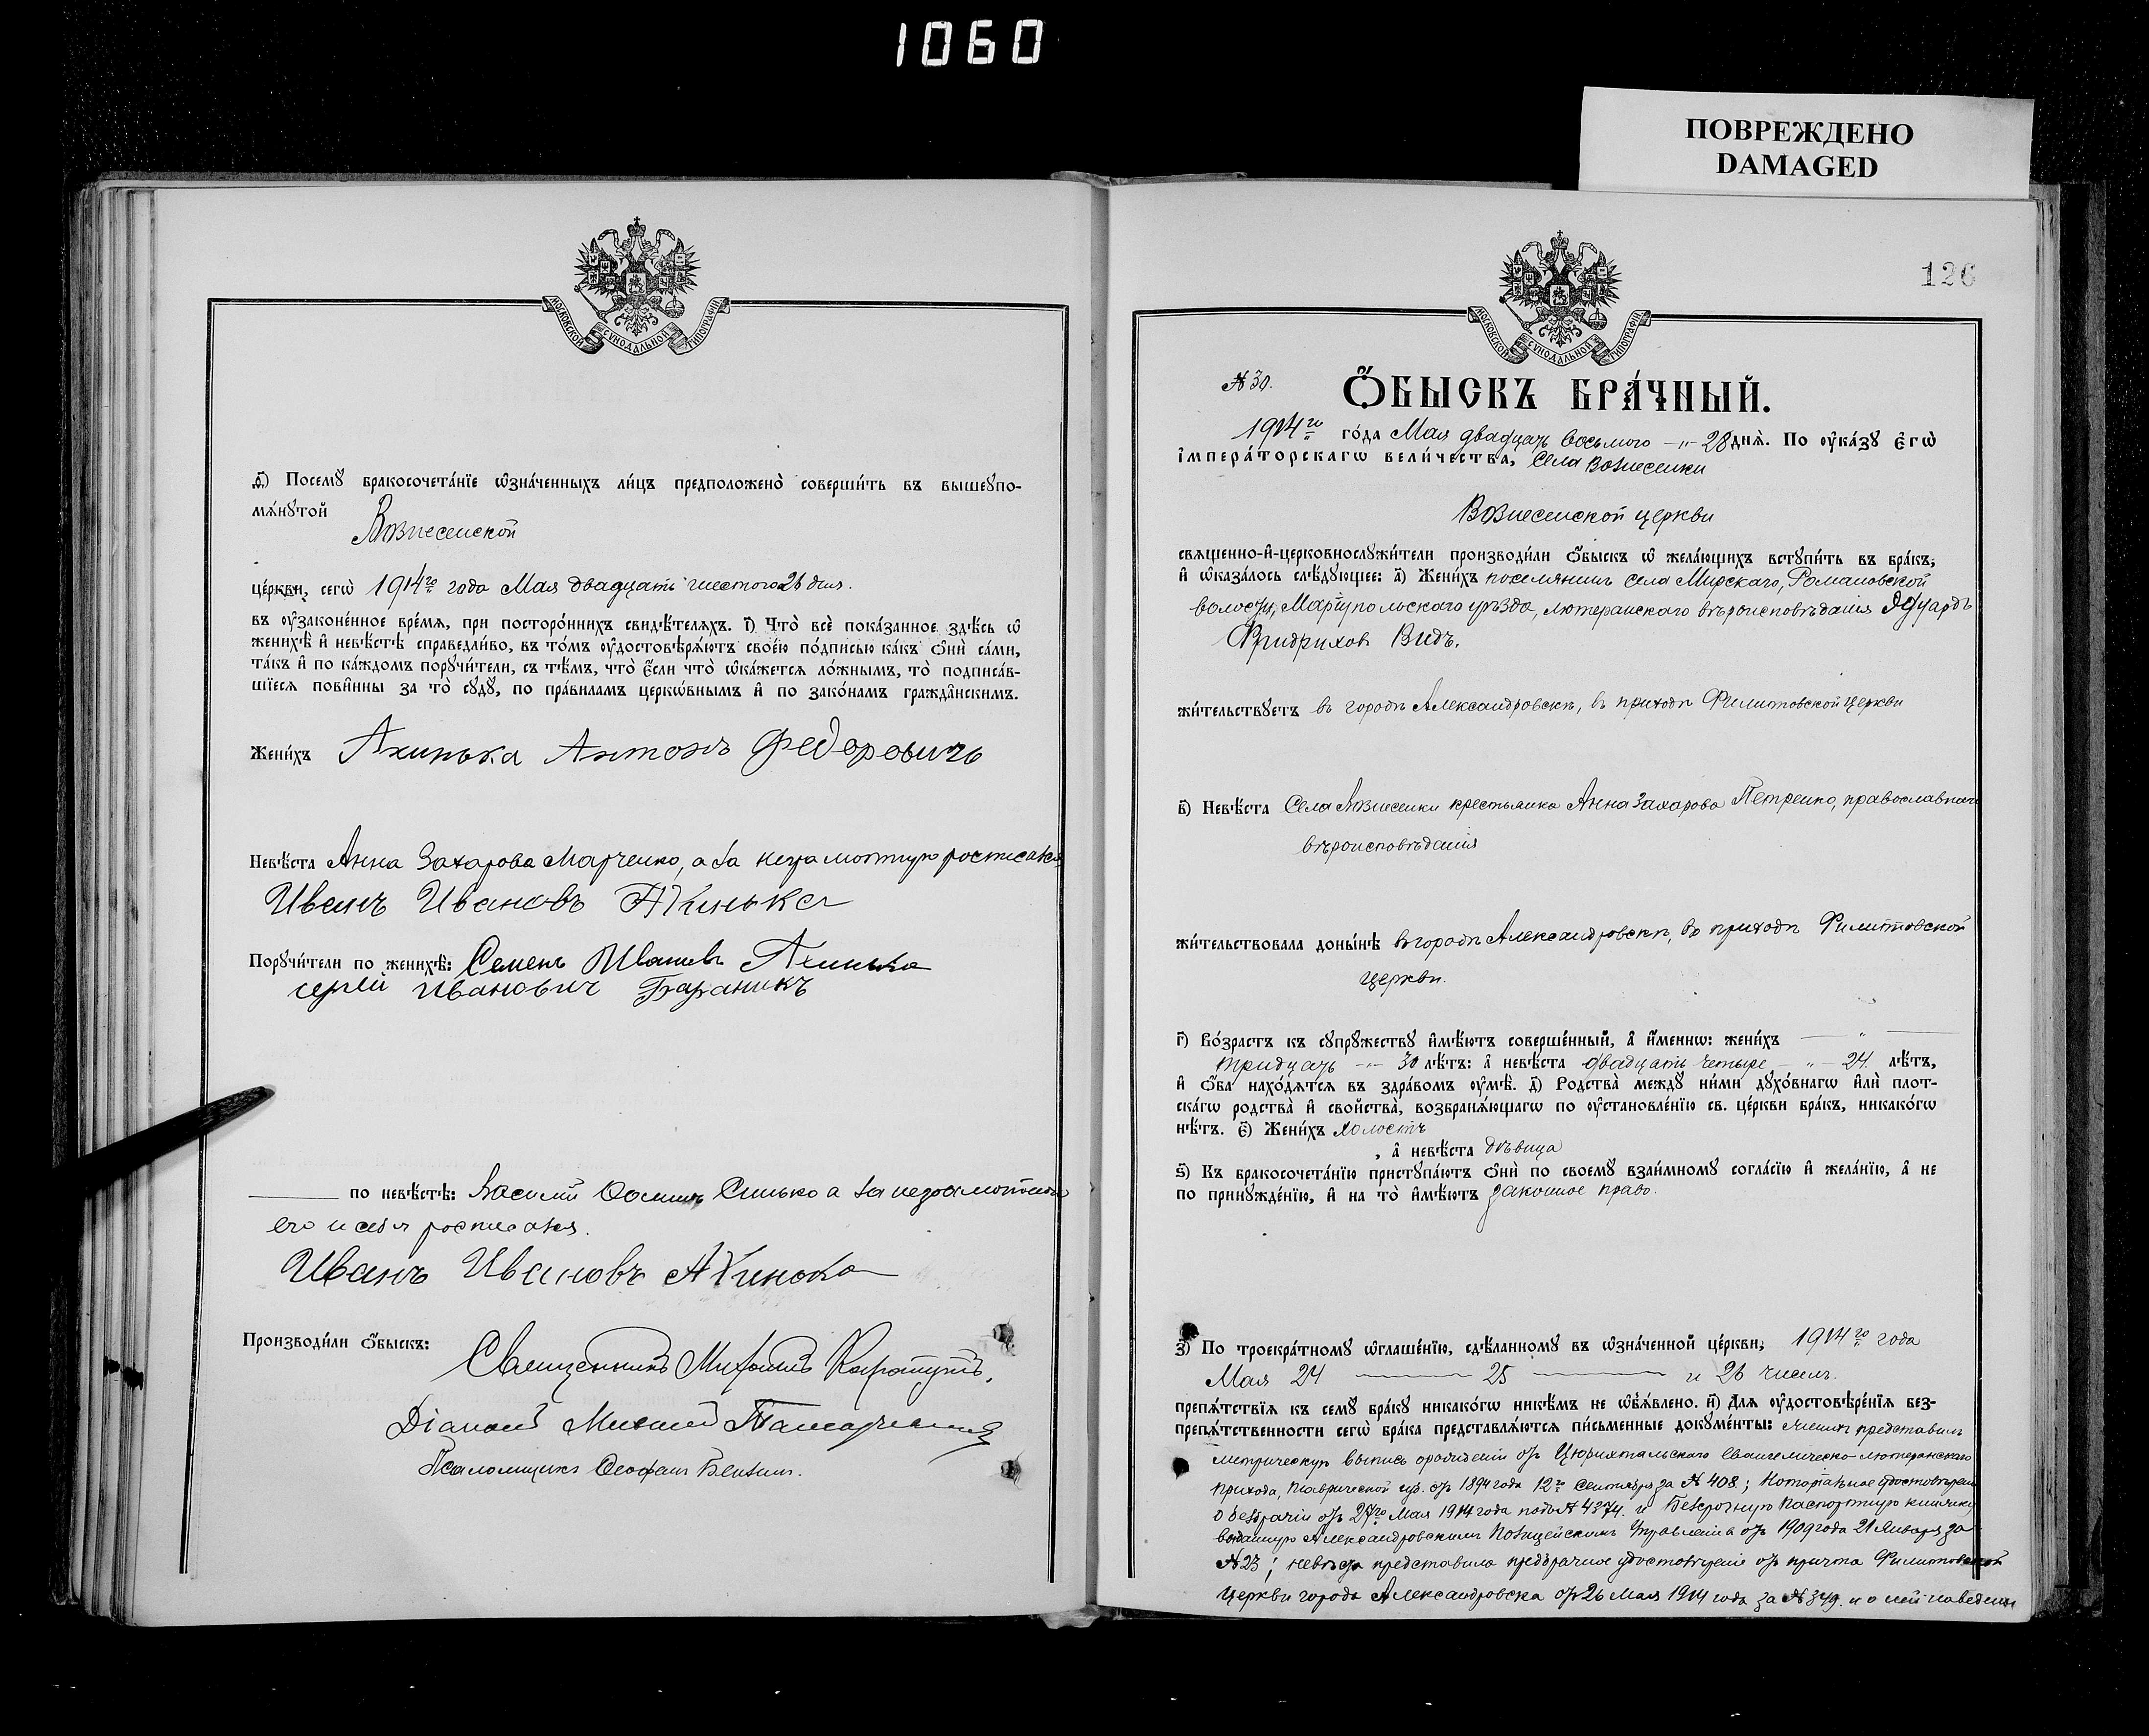 1060
ПОВРЕЖДЕНО
DAMAGED
МОСКОВСКОЙ СУНОДАЛЬНОЙ ТИПОГРАФІИ
ѳ҃) Посемꙋ бракосочета́нїе ѡ҆зна́ченныхъ ли́цъ предположено̀ соверши́ть въ вышеꙋпо-
мѧ́нꙋтой
Вознесенской
це́ркви, сегѡ̀ 1914го года Мая двадцать шестого 26 дня.
въ ᲂу҆зако́не́нное вре́мѧ, при посторо́ннихъ свидѣ́телѧхъ. і҃) Что̀ всѐ пока́занное здѣ́сь ѡ҆
женихѣ̀ и҆ невѣ́стѣ справедли́во, въ то́мъ ᲂу҆достовѣрѧ́ютъ свое́ю по́дписью ка́къ ѻ҆нѝ са́ми,
та́къ и҆ по ка́ждомъ порꙋчи́тели, съ тѣ́мъ, что̀ є҆́сли что̀ ѡ҆ка́жетсѧ ло́жнымъ, то̀ подписа́в-
шїесѧ пови́нны за то̀ сꙋдꙋ̀, по пра́виламъ церкѡ́внымъ и҆ по зако́намъ гражда́нскимъ.
Жени́хъ Ахинька Антонъ Федоровичь
Невѣ́ста Анна Захарова Марченко, а за неграмотную росписался
Иванъ Ивановъ Ахинька
Порꙋчи́тели по женихѣ̀: Семенъ Ивановъ Ахинька
сергей Иванович Бараникъ
по невѣ́стѣ: Василій Синько а за неграмотного
его и себя росписался.
Иванъ Ивановъ Ахинька
Производи́ли ѻ҆́быскъ:
Священникъ Михаилъ
Діаконъ Михаилъ
Псаломщикъ Феофанъ
МОСКОВСКОЙ СУНОДАЛЬНОЙ ТИПОГРАФІИ
126
№ 30.
Ѻ҆́БЫСКЪ БРА́ЧНЫЙ.
1914го го́да Мая двадцать восьмого -„- 28 днѧ̀. По ᲂу҆ка́зꙋ Є҆гѡ̀
І҆мпера́торскагѡ вели́чества, Села Вознесенки
Вознесенской церкви
свѧщенно-и҆-церковнослꙋжи́тели производи́ли ѻ҆́быскъ ѡ҆ жела́ющихъ встꙋпи́ть въ бра́къ,
и҆ ѡ҆каза́лось слѣ́дꙋющее: а҃) Жени́хъ поселянинъ села Мирскаго, Романовской
волости, Маріупольскаго уѣзда, лютеранскаго вѣроисповѣданія Эдуардъ
Фридриховъ Видъ.
жи́тельствꙋетъ въ городѣ Александровскѣ, въ приходѣ Филиповской церкви
в҃) Невѣ́ста Села Вознесенки крестьянка Анна Захарова Петренко, православнаго
вѣроисповѣданія
жи́тельствовала доны́нѣ въ городѣ Александровскѣ, въ приходѣ Филиповской
церкви.
г҃) Во́зрастъ къ сꙋпрꙋжествꙋ и҆мѣ́ютъ соверше́нный, а҆ и҆́меннѡ: жени́хъ — „ —
тридцать -„- 30 лѣ́тъ: а҆ невѣ́ста двадцать четыре -„- 24 лѣ́тъ,
и҆ ѻ҆́ба нахо́дѧтсѧ въ здра́вомъ ᲂу҆мѣ̀. д҃) Родства̀ междꙋ ни́ми дꙋхо́внагѡ и҆лѝ плот-
ска́гѡ родства̀ и҆ свойства̀, возбранѧ́ющагѡ по ᲂу҆становле́нїю св. це́ркви бра́къ, никако́гѡ
нѣ́тъ. є҃) Жени́хъ холостъ
, а҆ невѣ́ста дѣвица
ѕ҃) Къ бракосочета́нїю пристꙋпа́ютъ ѻ҆нѝ по своемꙋ̀ взаи́мномꙋ согла́сїю и҆ жела́нїю, а҆ не
по принꙋжде́нїю, и҆ на то̀ и҆мѣ́ютъ законное право.
з҃) По троекра́тномꙋ ѡ҆глаше́нїю, сдѣ́ланномꙋ въ ѡ҆зна́ченной це́ркви, 1914го года
Мая 24 — 25 — и 26 чиселъ.
препѧ́тствїѧ къ семꙋ̀ бра́кꙋ никако́гѡ никѣ́мъ не ѡ҆б̾ѧ́влено. и҃) Для ᲂу҆достовѣре́нїѧ без-
препѧ́тственности сегѡ̀ бра́ка представлѧ́ютсѧ пи́сьменные докꙋме́нты: женихъ представилъ
метрическую выпись о рожденіи отъ Цюрихтальскаго Евангелическо-лютеранскаго
прихода, Таврической губ. отъ 1894 года 12го Сентября за № 408; удостовѣреніе
о безбрачіи отъ 27го Мая 1914 года подъ № 4374. и безсрочную паспортную книжку,
выданную Александровскимъ Полицейскимъ Управленіе отъ 1909 года 21 Января за
№ 23; невѣста представила предбрачное удостовѣреніе отъ причта Филиповской
церкви города Александровска отъ 26 Мая 1914 года за № 349.